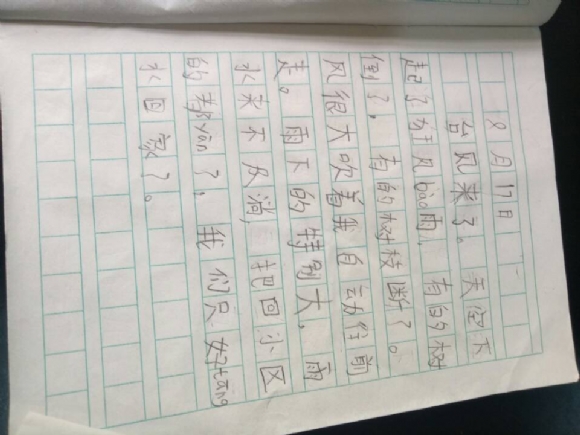 9月17日
台风来了。天空下
起了狂风bào雨,有的树
倒了,有的树枝断了。
风很大吹着我自动往前
走。雨下的特别大,雨
水来不及淌,把回小区
的都yān了,我们只好tāng
水回家了。